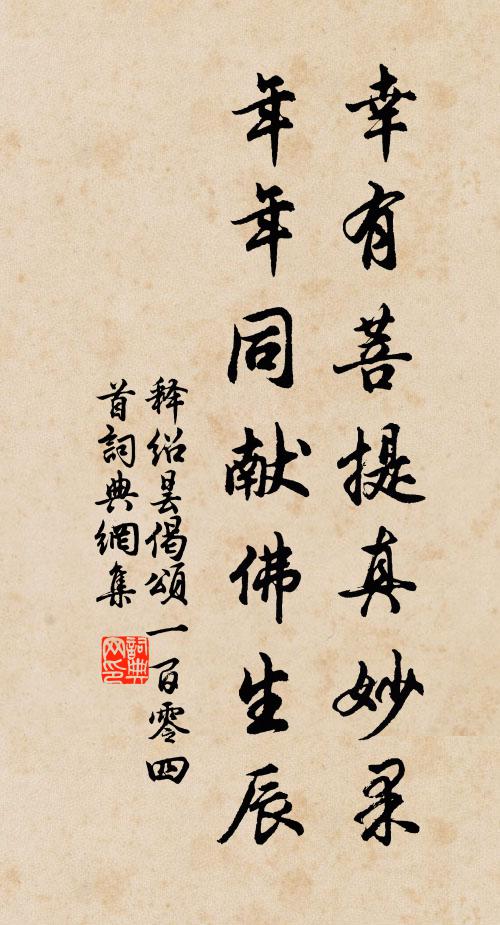 幸有菩提真妙果
年年同献佛生辰
释绍昙偈颂一百零四
首詞典網集
詞典
网印